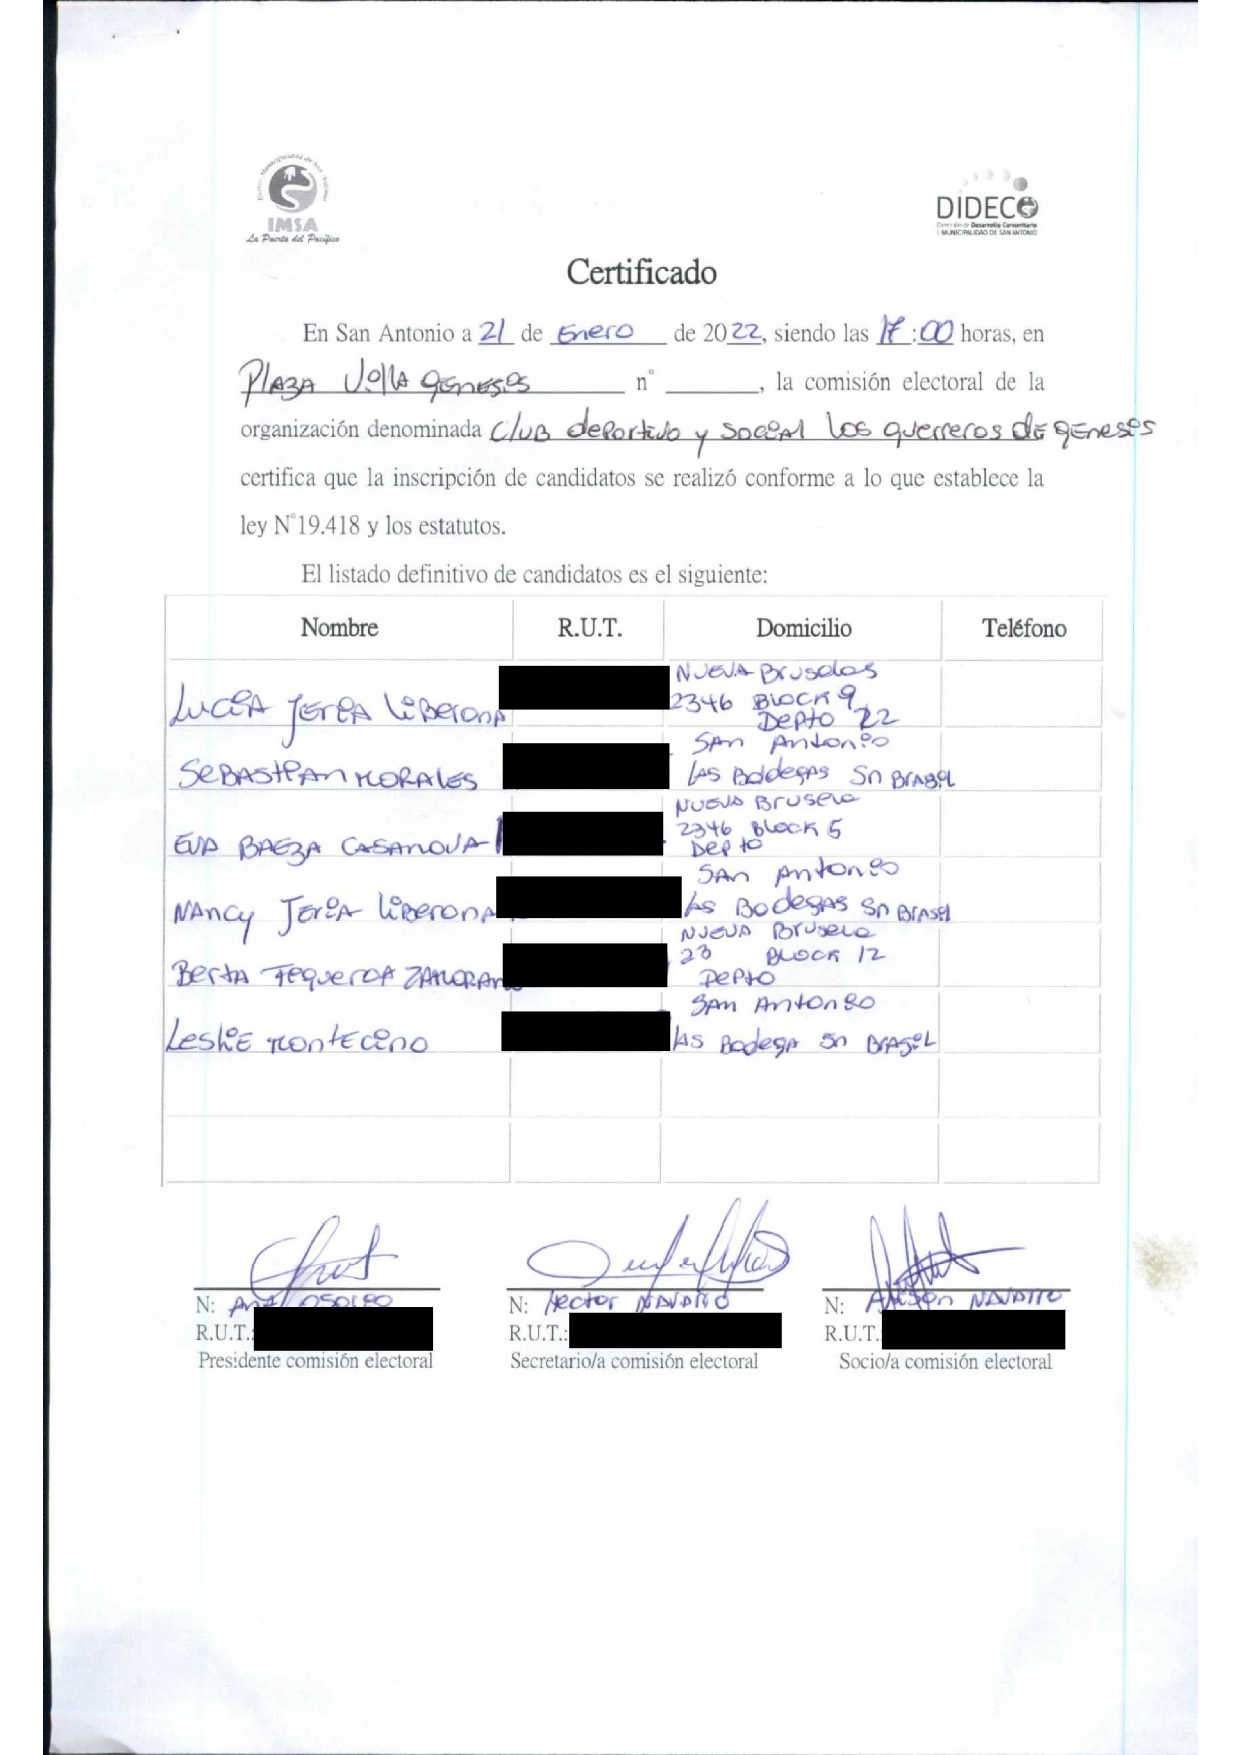 Ilustre Municipalidad de San Antonio
IMSA
La Puerta del Pacífico
DIDECO
Dirección de Desarrollo Comunitario
I. MUNICIPALIDAD DE SAN ANTONIO
Certificado
En San Antonio a 21 de Enero de 2022, siendo las 17:00 horas, en
Plaza Villa geneses n° , la comisión electoral de la
organización denominada Club deportivo y social los guerreros de geneses
certifica que la inscripción de candidatos se realizó conforme a lo que establece la
ley N°19.418 y los estatutos.
El listado definitivo de candidatos es el siguiente:
Nombre R.U.T. Domicilio Teléfono
Nueva Bruselas
Lucia Jeria Liberona 2346 Block 9
Depto 22
San Antonio
Sebastian Morales Las Boddegas Sn Brasil
Nueva Brusela
2346 Block 5
Eva Baeza Casanova Depto
San Antonio
Nancy Jeria Liberona Las Bodegas Sn Brasil
Nueva Brusela
23 Block 12
Berta Fequeroa Zamoran Depto
San Antonio
Leslie Montecino Las Bodega Sn Brasil
N: Ana Osorio N: Hector Navarro N: Alison Navarro
R.U.T.: R.U.T.: R.U.T.
Presidente comisión electoral Secretario/a comisión electoral Socio/a comisión electoral